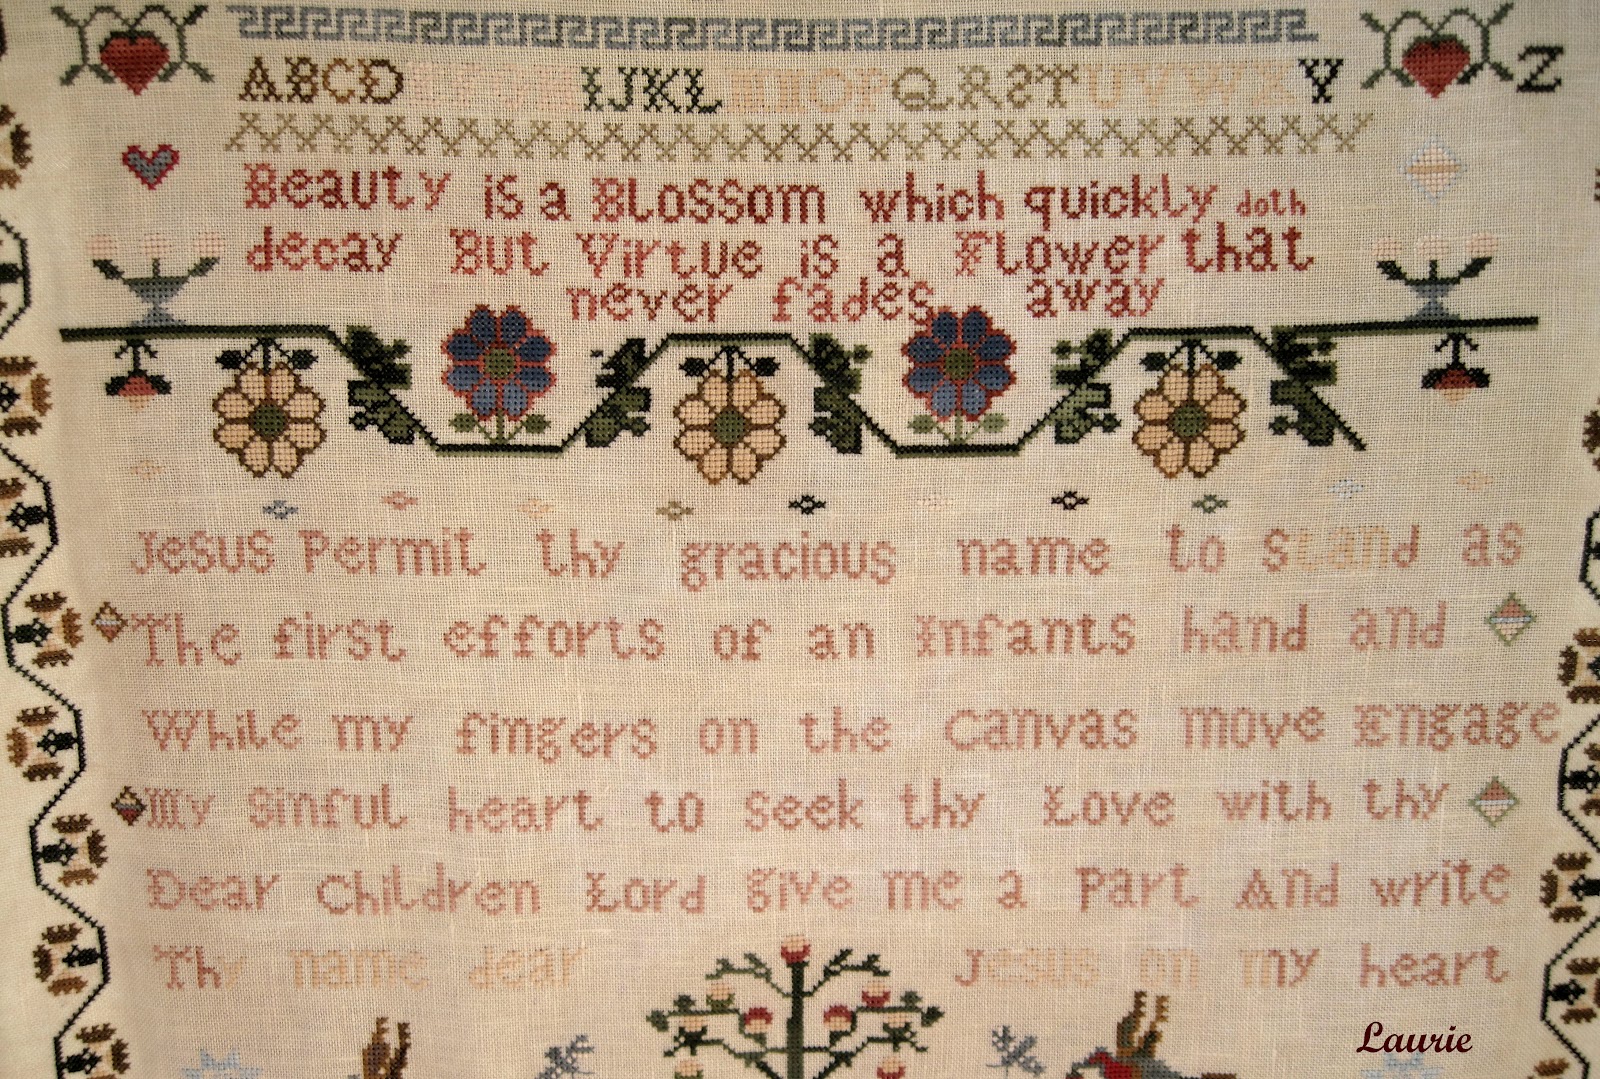 ABCDEFGHIJKLMNOPQRSTUVWXY Z
Beauty is a Blossom which quickly doth
decay But Virtue is a Flower that
never fades away
Jesus Permit thy gracious name to stand as
The first efforts of an Infants hand and
While my fingers on the Canvas move Engage
My Sinful heart to Seek thy Love with thy
Dear Children Lord give me a Part And write
Thy name dear Jesus on my heart
Laurie